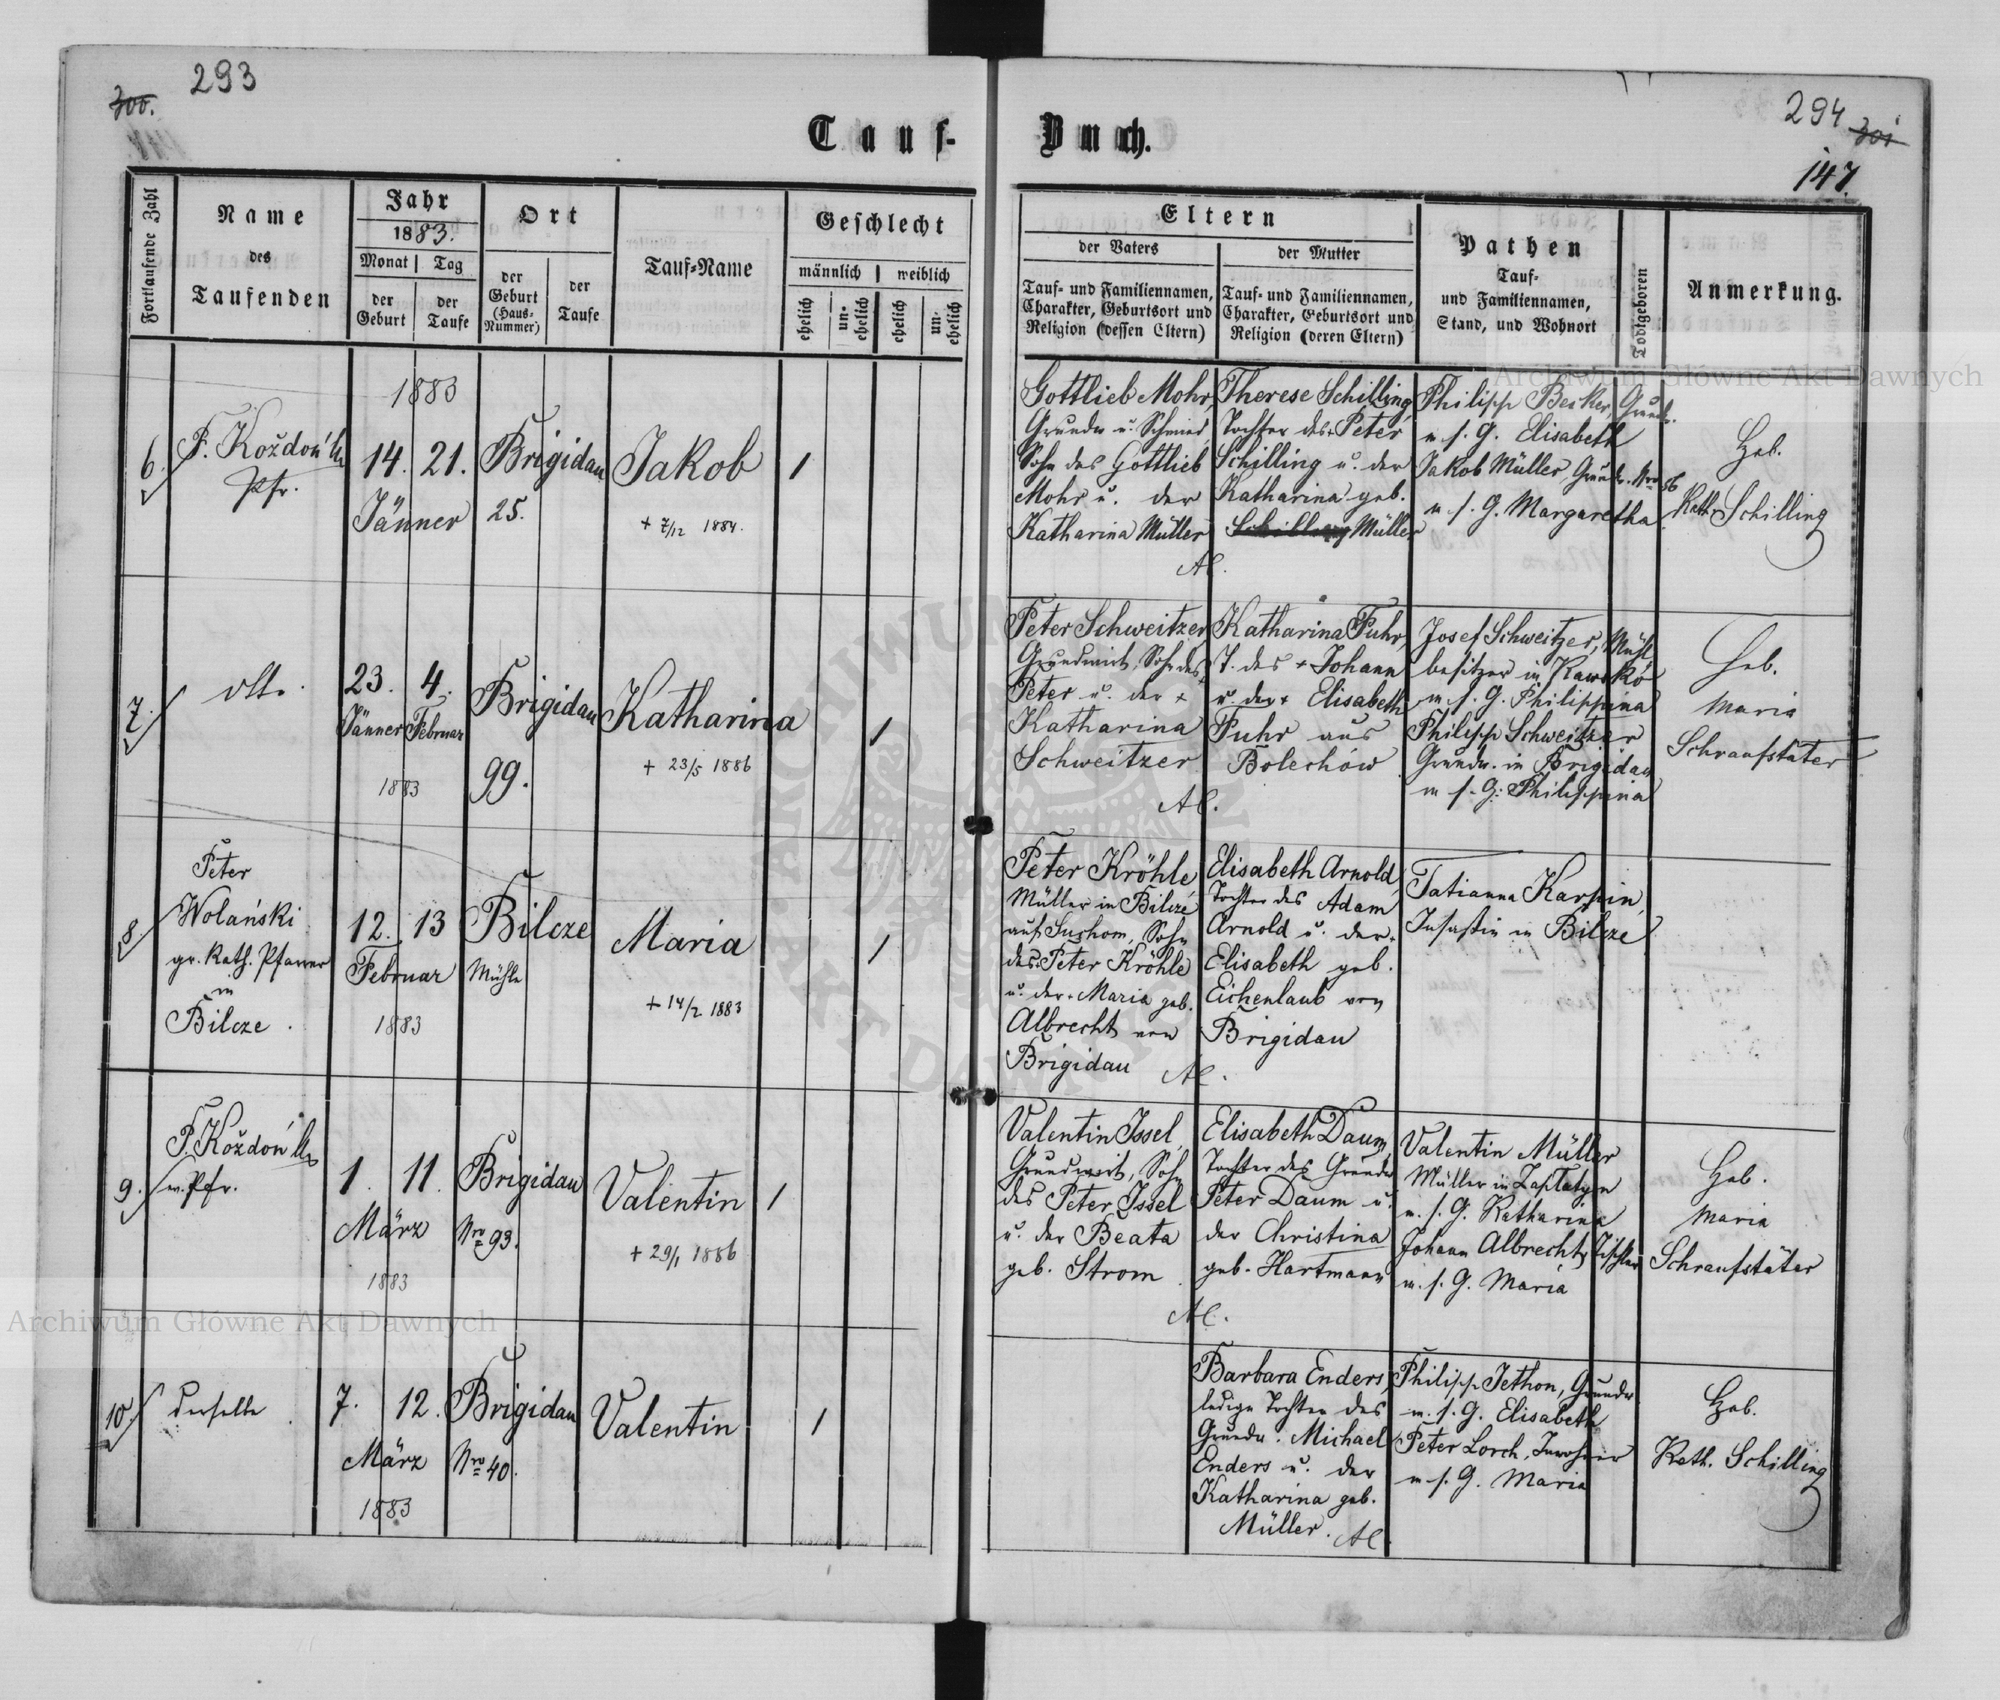 293
300.
Tauf-
Buch.
294
301
147.
Fortlaufende Zahl
Name
des
Taufenden
Jahr
1883.
Monat
Tag
der
Geburt
der
Taufe
Ort
der
Geburt
(Haus-
Nummer)
der
Taufe
Tauf-Name
Geschlecht
männlich
weiblich
ehelich
un-
ehelich
ehelich
un-
ehelich
Eltern
der Vaters
der Mutter
Tauf- und Familiennamen,
Charakter, Geburtsort und
Religion (dessen Eltern)
Tauf- und Familiennamen,
Charakter, Geburtsort und
Religion (deren Eltern)
Pathen
Tauf-
und Familiennamen,
Stand, und Wohnort
Todtgeboren
Anmerkung.
6.
P. Koždoń
Pfr.
1883
14. 21.
Jänner
Brigidau
25.
Jakob
+ 7/12 1884.
1
Gottlieb Mohr,
Grundw u. Schmied,
Sohn des Gottlieb
Mohr u. der
Katharina Müller
Therese Schilling,
Tochter des Peter
Schilling u. der
Katharina geb.
Schilling Müller
Al.
Philipp Becker, Grundw.
m s. G. Elisabeth
Jakob Müller, Grundw. Nro 56
m s. G. Margaretha
Heb.
Kath. Schilling
7.
dtto.
23. 4.
Jänner Februar
1883
Brigidau
99.
Katharina
+ 23/5 1886
1
Peter Schweitzer
Grundwirt, Sohn des
Peter u. der +
Katharina
Schweitzer
Katharina Fuhr,
T. des + Johann
u. der + Elisabeth
Fuhr aus
Bolechów
Al.
Josef Schweitzer, Mühl
besitzer in Kawsko
m s. G. Philippina
Philipp Schweitzer
Grundw. in Brigidau
m s. G. Philippina
Heb.
Maria
Schraufstäter
8.
Peter
Wolański
gr. Kath. Pfarrer
in
Bilcze.
12. 13
Februar
1883
Bilcze
Mühle
Maria
+ 14/2 1883
1
Peter Kröhle,
Müller in Bilcze
aus Suchom, Sohn
des Peter Kröhle
u. der + Maria geb.
Albrecht von
Brigidau
Elisabeth Arnold,
Tochter des Adam
Arnold u. der +
Elisabeth geb.
Eichenlaub von
Brigidau
Al.
Tatianna Karpin,
Insaßin in Bilcze
9.
P. Koždoń
Pfr.
1. 11.
März
1883
Brigidau
Nro 93.
Valentin
+ 29/1 1886
1
Valentin Issel,
Grundwirt, Sohn
des Peter Issel
u. der Beata
geb. Strom
Elisabeth Daum,
Tochter des Grundw
Peter Daum u.
der Christina
geb. Hartmann
Al.
Valentin Müller
Müller in
m. s. G. Katharina
Johann Albrecht, Tischler
m. s. G. Maria
Heb.
Maria
Schraufstäter
10.
Derselbe
7. 12.
März
1883
Brigidau
Nro 40.
Valentin
1
Barbara Enders,
ledige Tochter des
Grundw. Michael
Enders u. der
Katharina geb.
Müller.
Al
Philipp Jethon, Grundw
m. s. G. Elisabeth
Peter Lorch, Inwohner
m s. G. Maria
Heb.
Kath. Schilling
Archiwum Główne Akt Dawnych
Archiwum Główne Akt Dawnych